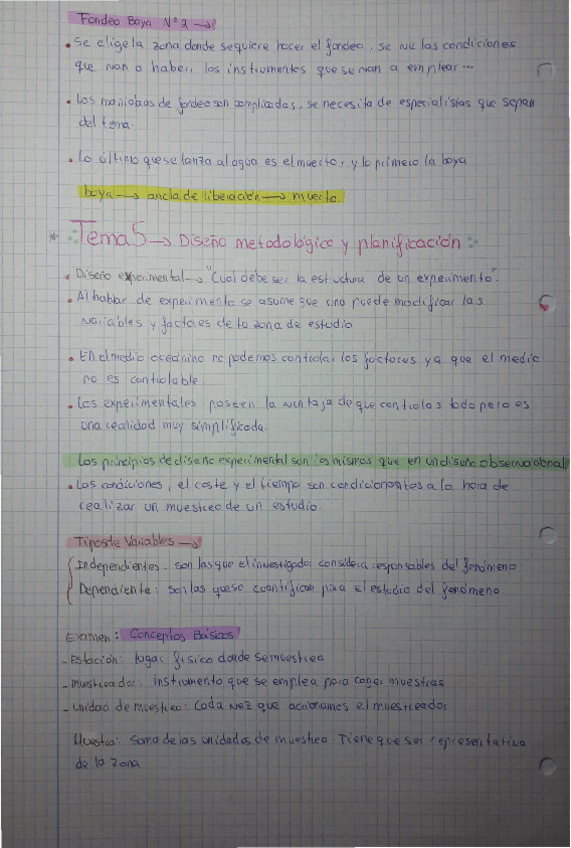 Fondeo Boya Nº2 →
• Se elige la zona donde se quiere hacer el fondeo, se ve las condiciones
que van a haber, los instrumentos que se van a emplear...
• Las maniobras de fondeo son complicadas, se necesita de especialistas que sepan
del tema.
• Lo último que se lanza al agua es el muerto, y lo primero la boya
boya → ancla de liberación → muerto
* Tema 5 → Diseño metodológico y planificación
• Diseño experimental → "Cual debe ser la estructura de un experimento".
• Al hablar de experimento se asume que uno puede modificar las
variables y factores de la zona de estudio
• En el medio oceánino no podemos controlar los factores ya que el medio
no es controlable.
• Los experimentales poseen la ventaja de que controlas todo pero es
una realidad muy simplificada.
Los principios de diseño experimental son los mismos que en un diseño observacional
• Las condiciones, el coste y el tiempo son condicionantes a la hora de
realizar un muestreo de un estudio.
Tipos de Variables →
Independientes - son las que el investigador considera responsables del fenómeno
Dependiente: son las que se cuantifican para el estudio del fenómeno
Examen: Conceptos Básicos
- Estación: lugar físico donde se muestrea
- Muestreador: instrumento que se emplea para coger muestras
- Unidad de muestreo: Cada vez que accionamos el muestreador
Muestra: Suma de las unidades de muestreo. Tiene que ser representativa
de la zona